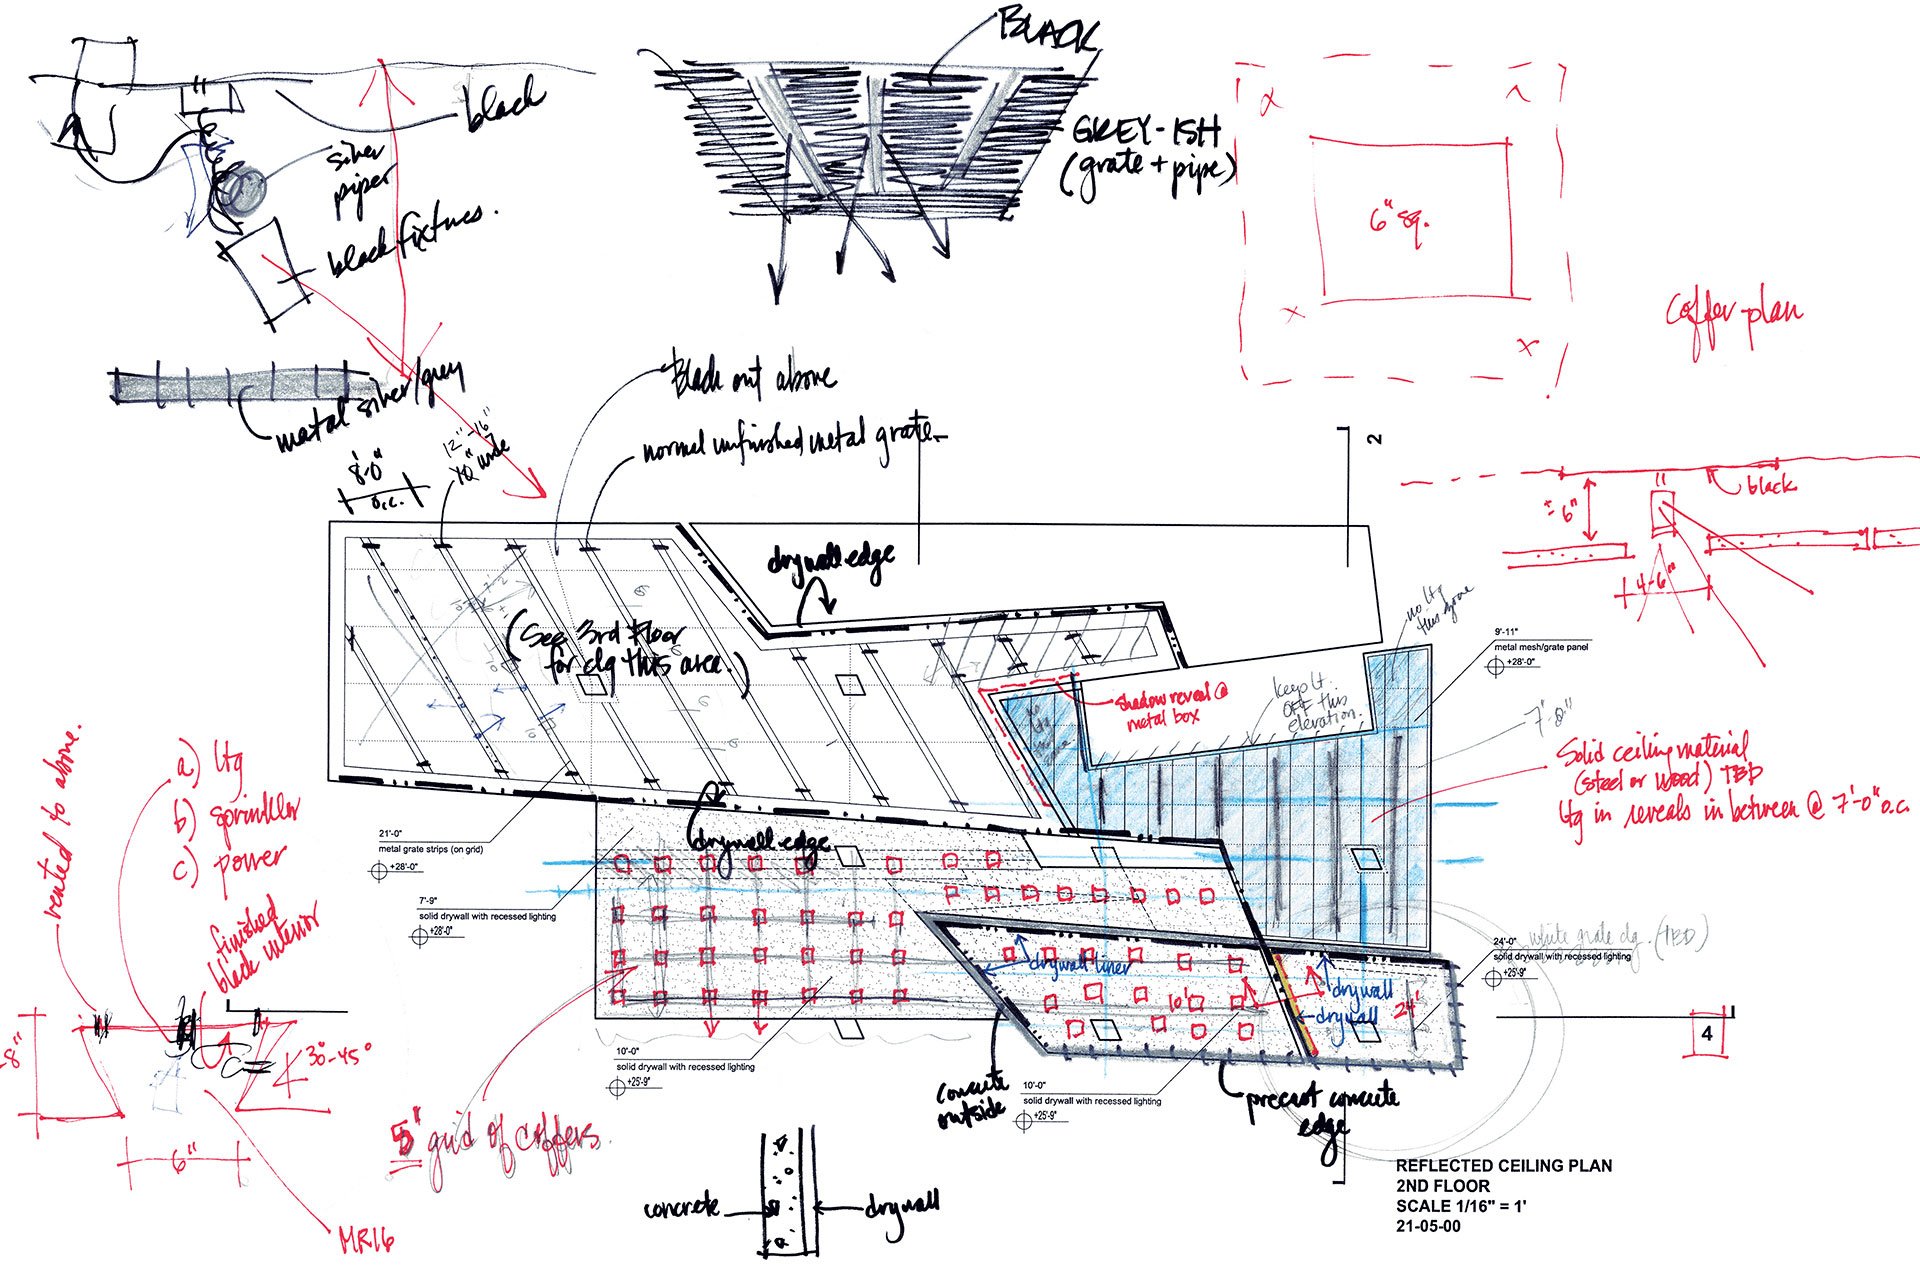 BLACK
black
silver
piper
black fixtures.
GREY-ISH
(grate + pipe)
6" sq.
Coffer plan
metal silver/grey
8'-0"
o.c.
12"-16"
wide
Black out above
normal unfinished metal grate
2
black
± 6"
4-6"
drywall edge
(See 3rd Floor
for clg this area.)
no ltg
this zone
9'-11"
metal mesh/grate panel
+28'-0"
shadow reveal @
metal box
keep lt.
OFF this
elevation.
7'-8"
Solid ceiling material
(steel or wood) TBD
ltg in reveals in between @ 7'-0" o.c.
vented to above.
a) ltg
b) sprinkler
c) power
finished
black interior
21'-0"
metal grate strips (on grid)
+28'-0"
drywall edge
7'-9"
solid drywall with recessed lighting
+28'-0"
white grate clg. (TBD)
24'-0"
solid drywall with recessed lighting
+25'-9"
drywall liner
drywall
drywall
10'
24'
4
8"
30°-45°
6"
MR16
10'-0"
solid drywall with recessed lighting
+25'-9"
5" grid of coffers.
concrete
outside
10'-0"
solid drywall with recessed lighting
+25'-9"
precast concrete
edge
concrete
drywall
REFLECTED CEILING PLAN
2ND FLOOR
SCALE 1/16" = 1'
21-05-00